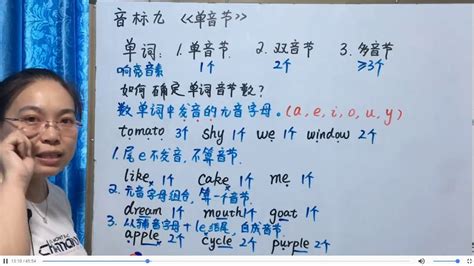 音标九 《单音节》
单词: 1.单音节. 2.双音节 3.多音节
响亮音素 1个 2个 ≥3个
如何确定单词音节数?
数单词中发音的元音字母. (a, e, i, o, u, y)
tomato 3个 shy 1个 we 1个 window 2个
1.尾e不发音,不算音节.
like 1个 cake 1个 me 1个
2.元音字母组合,算一个音节.
dream 1个 mouth 1个 goat 1个
3.以辅音字母+le结尾,自成音节.
apple 2个 cycle 2个 purple 2个